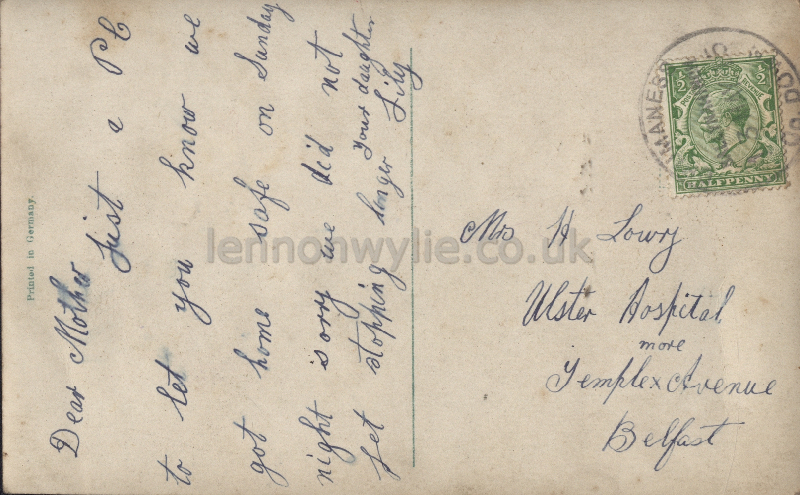 Dear Mother just a PC
to let you know we
got home safe on Sunday
night sorry we did not
get stopping longer Your daughter
Lily
Mrs H Lowry
Ulster Hospital
more
Templex Avenue
Belfast
Printed in Germany.
½ ½
HALFPENNY
CO. DOWN
lennonwylie.co.uk